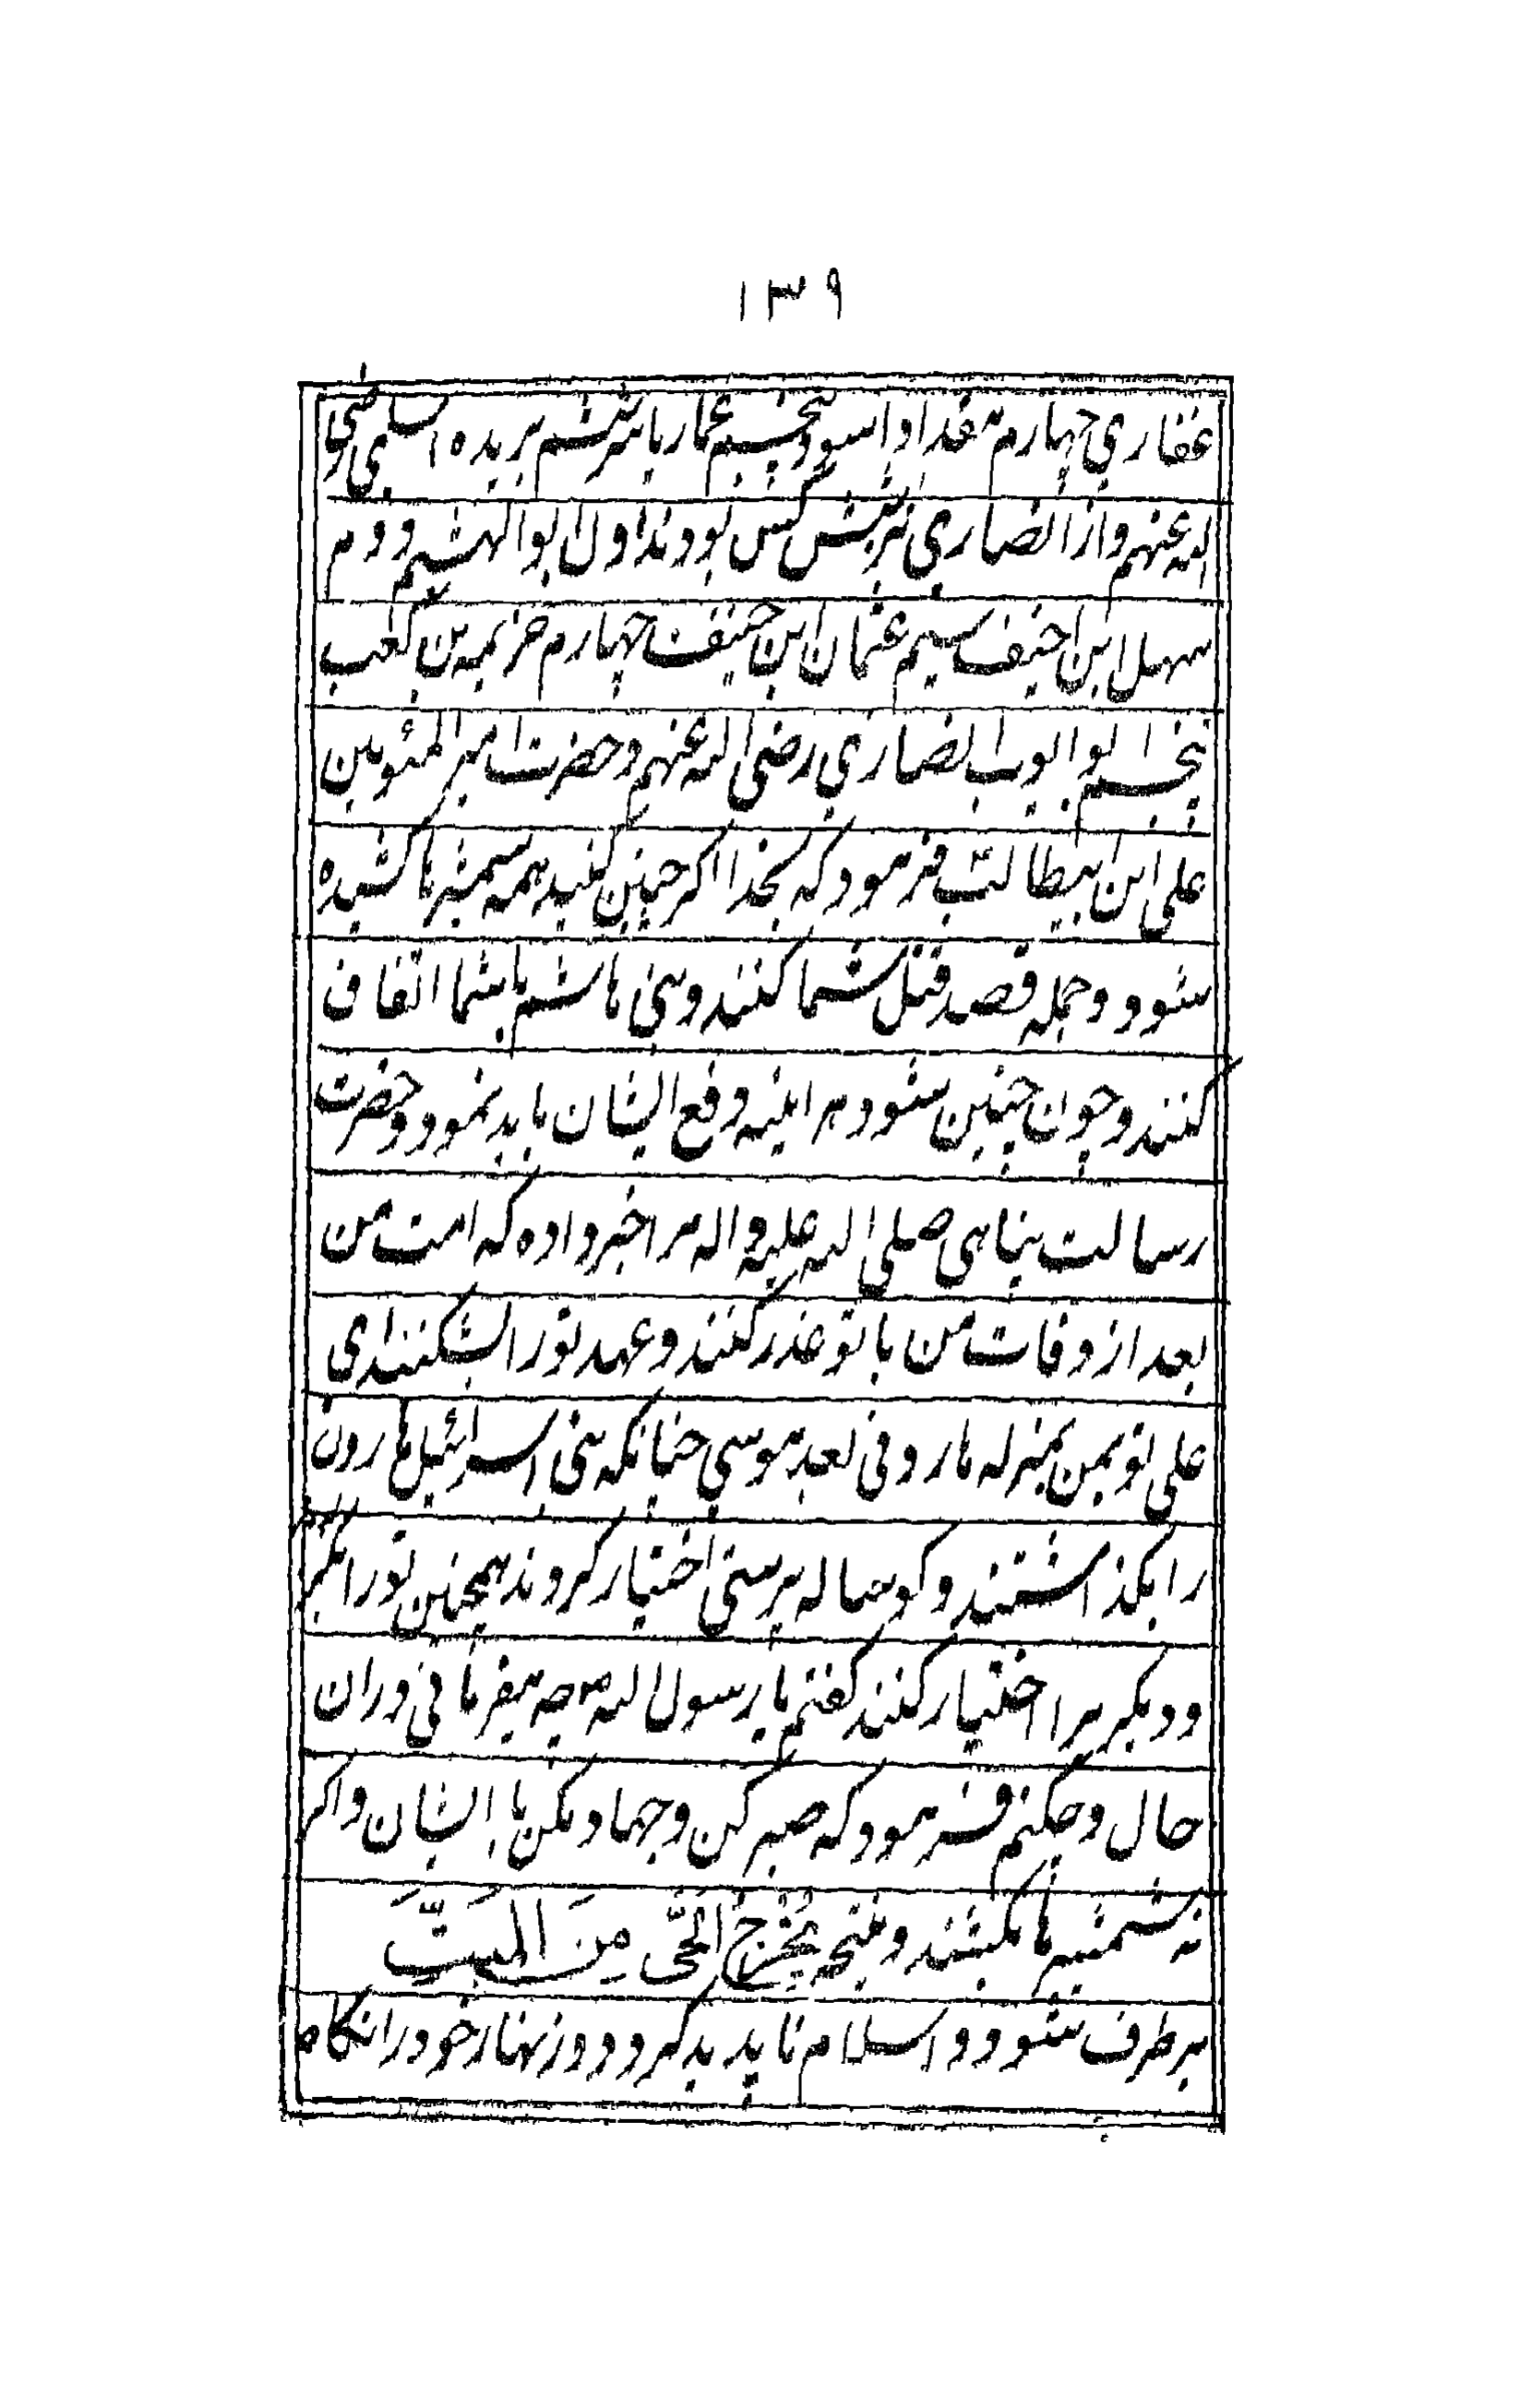 ١٣٩
غفاري چهارم مقداد اسود پنجم عمار یاسر ششم بریده اسلمی رضی
الله عنهم واز انصاري نیز شش کس بودند اول ابو الهشیم دوم
سهل ابن احنیف سیم عثمان ابن حنیف چهارم خزیمه بن کعب
پنجم ابو ایوب انصاري رضی الله عنهم وحضرت امیر المئومین
علی ابن ابیطالب فرمود که بخدا اکر چنین کنید همه شمشیرها کشیده
شود و جمله قصد قتل شما کنند و بنی هاشم با شما اتفاق
کنند و چون چنین شود هر اینه دفع ایشان باید نمود و حضرت
رسالت پناهی صلی الله علیه واله مرا خبر داده که امت من
بعد از وفات من با تو غدر کنند و عهد تورا بشکنند ای
علی تو بمن بمنزله هارونی بعد موسي چنانکه بنی اسرائیل هارون
را بکذاشتند و کوساله پرستی اختیار کردند همچنین تورا بکذارند
و دیکریرا اختیار کنند کفتم یا رسول الله ص چه میفرمائی دران
حال و چکنم فرمود که صبر کن و جهاد مکن با ایشان واکر
نه شمشیرها بکشند و نتیجه یُخْرِجُ الْحَیَّ مِنَ الْمَیِّتِ
برطرف شود و اسلام ناپدید کردد و زنهار خودرا نکاه